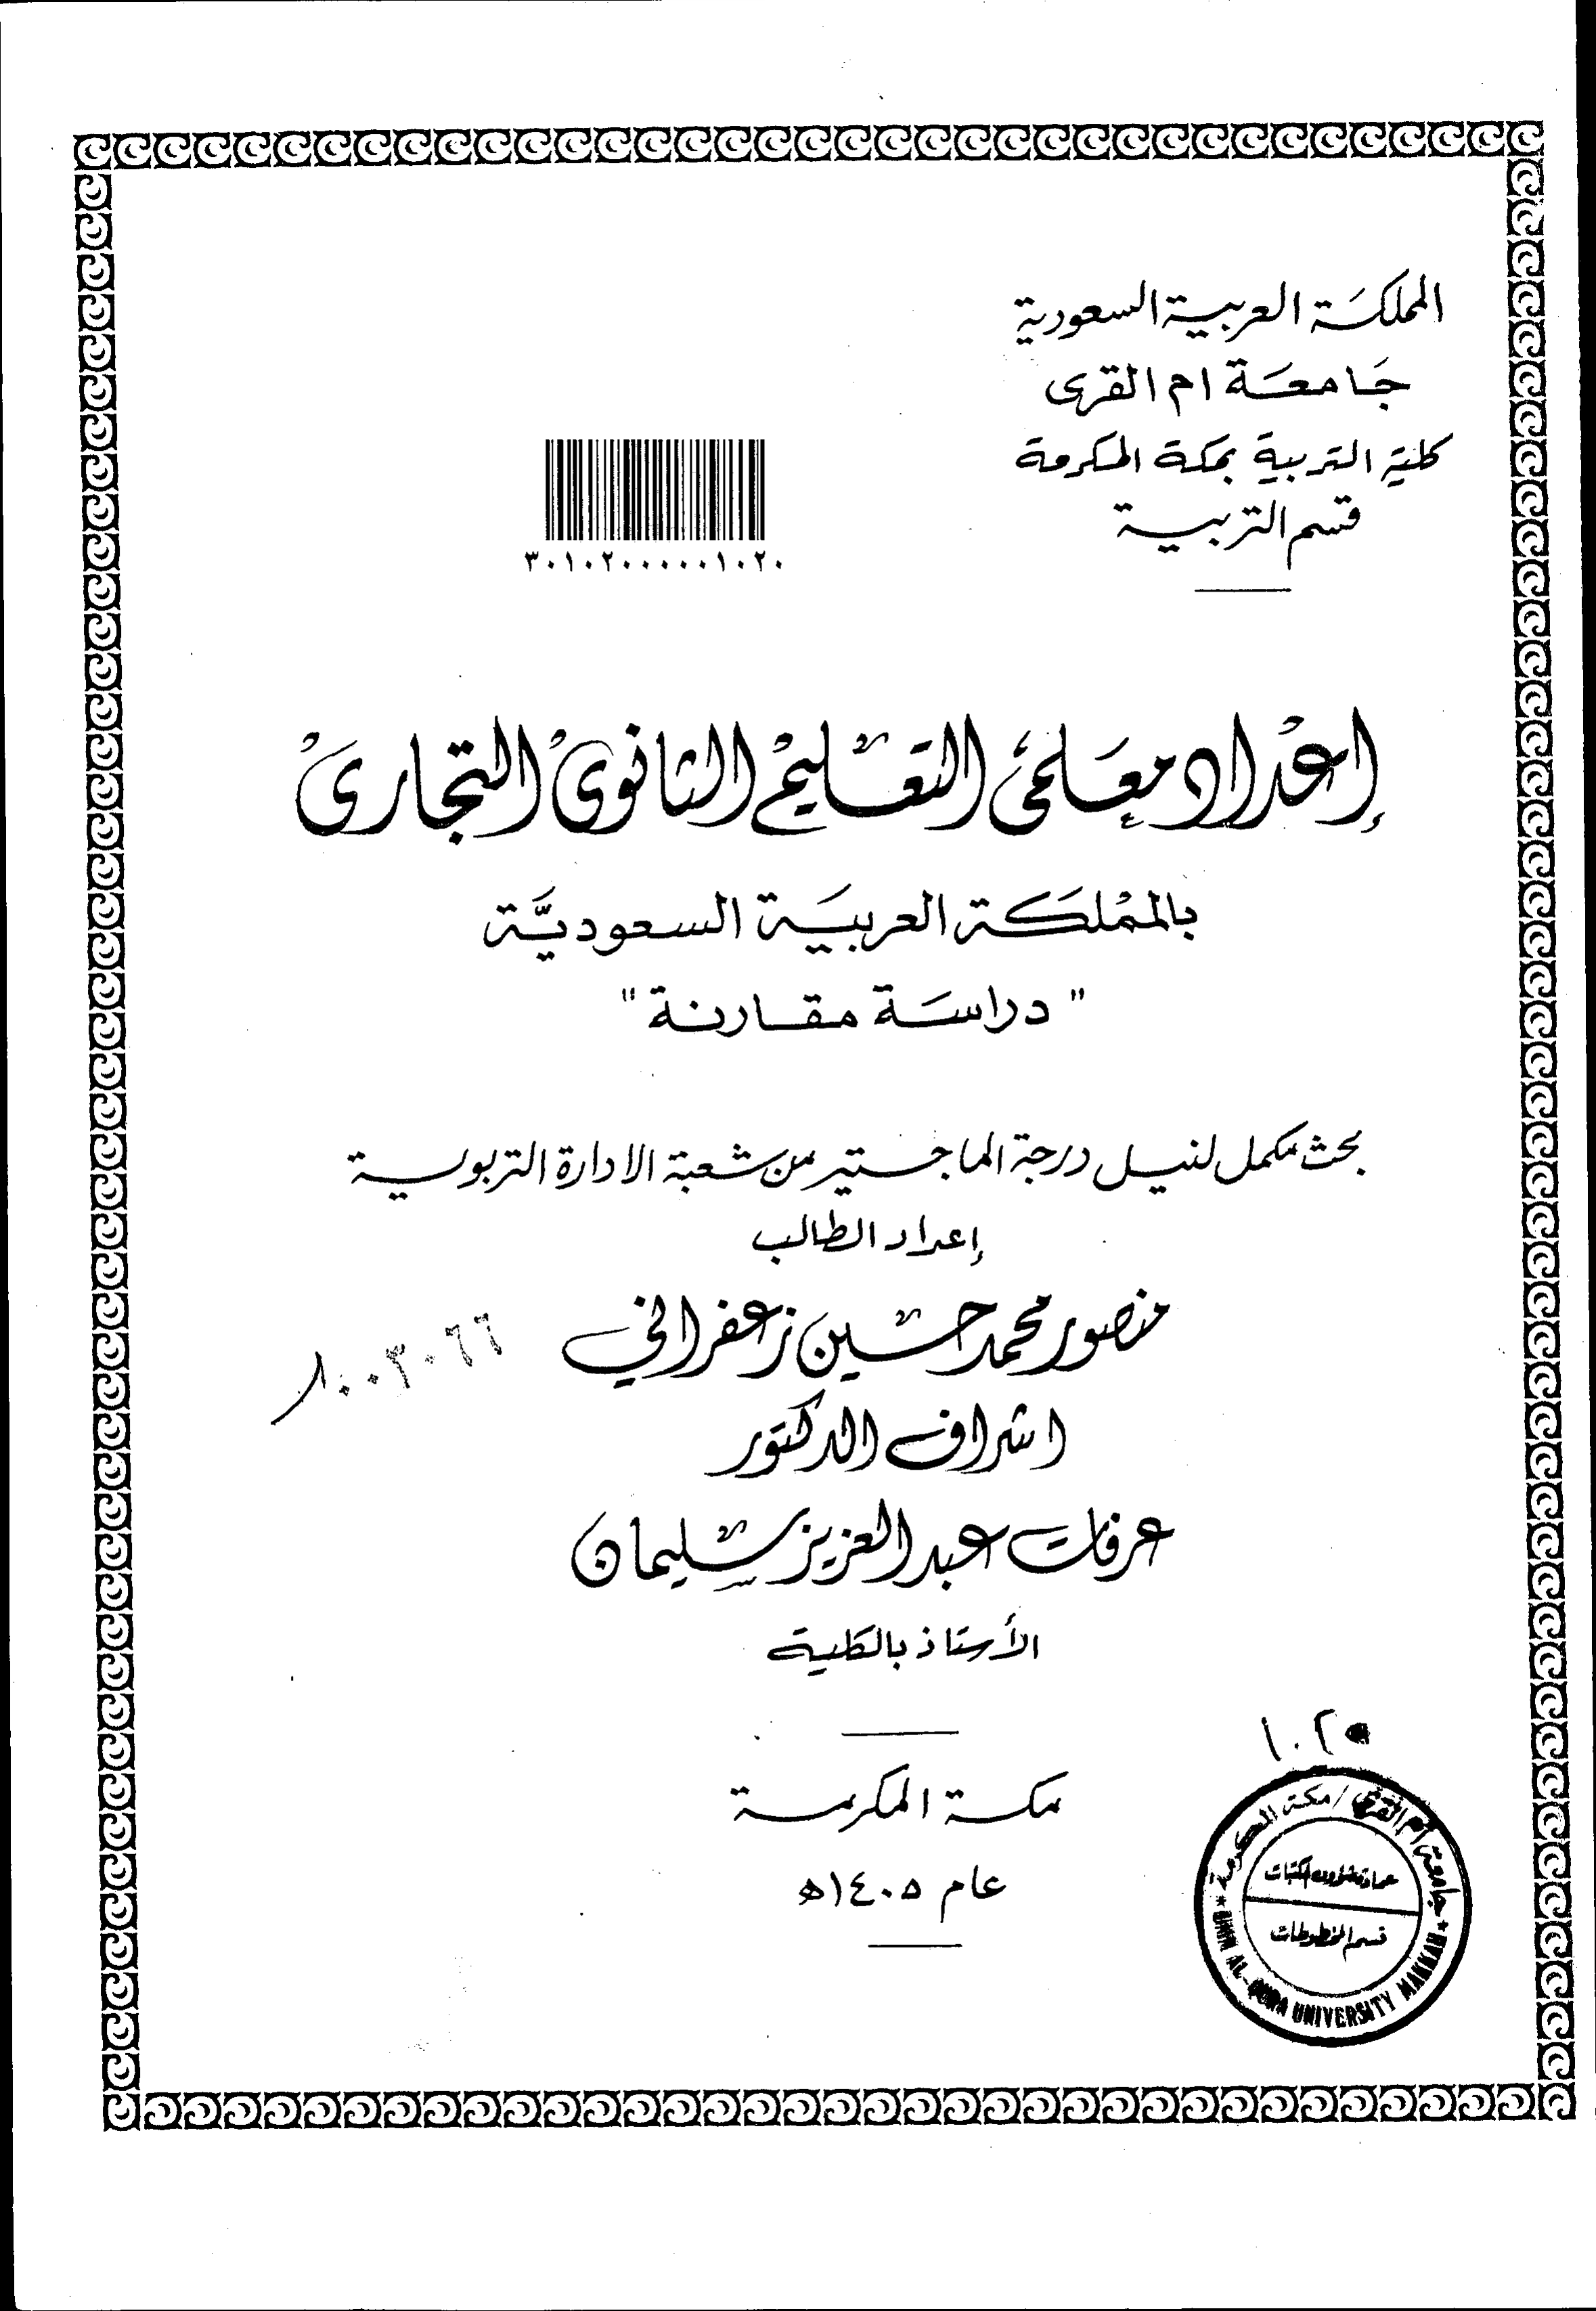 المملكة العربية السعودية
جامعة ام القرى
كلية التربية بمكة المكرمة
قسم التربية
٣٠١٠٢٠٠٠٠٠١٠٢٠
إعداد معلمي التعليم الثانوى التجارى
بالمملكة العربية السعودية
"دراسة مقارنة"
بحث مكمل لنيل درجة الماجستير من شعبة الادارة التربوية
إعداد الطالب
منصور محمد حسين زعفراني
اشراف الدكتور
عرفات عبد العزيز سليمان
الأستاذ بالكلية
مكة المكرمة
عام ١٤٠٥ه
١٠٢٠
جامعة أم القرى / مكة المكرمة
عمادة شؤون المكتبات
قسم المخطوطات
UMM AL-QURA UNIVERSITY MAKKAH